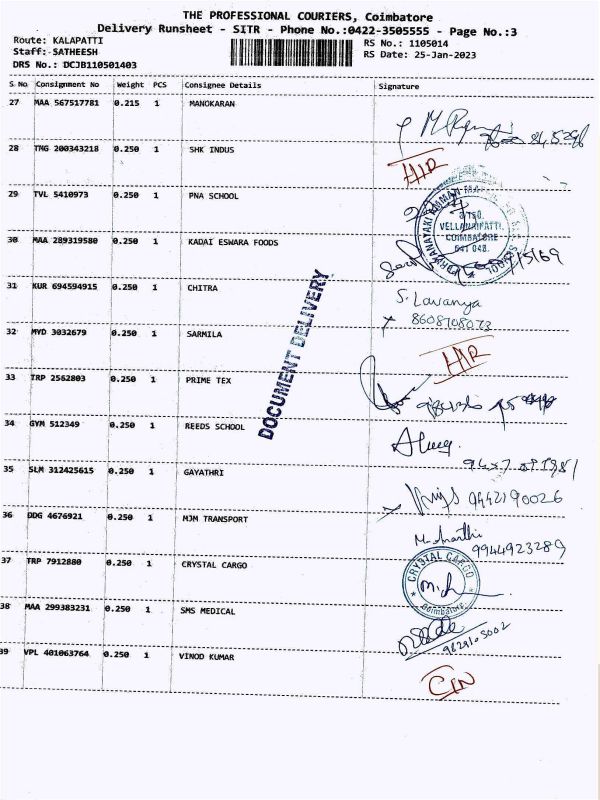 THE PROFESSIONAL COURIERS, Coimbatore
Delivery Runsheet - SITR - Phone No.:0422-3505555 - Page No.:3
Route: KALAPATTI
Staff: SATHEESH
DRS No.: DCJB110501403
RS No.: 1105014
RS Date: 25-Jan-2023
S. No Consignment No Weight PCS Consignee Details Signature
27 MAA 567517781 0.215 1 MANOKARAN
28 TMG 200343218 0.250 1 SHK INDUS
29 TVL 5410973 0.250 1 PNA SCHOOL
VELLANAIPATTI,
COIMBATORE
641 048.
30 MAA 289319580 0.250 1 KADAI ESWARA FOODS
31 KUR 694594915 0.250 1 CHITRA
S. Lavanya
8608708073
32 MYD 3032679 0.250 1 SARMILA
33 TRP 2562803 0.250 1 PRIME TEX
34 GYM 512349 0.250 1 REEDS SCHOOL
35 SLM 312425615 0.250 1 GAYATHRI
9442190026
36 DDG 4676921 0.250 1 MJM TRANSPORT
9944923289
37 TRP 7912880 0.250 1 CRYSTAL CARGO
CRYSTAL CARGO
Coimbatore
38 MAA 299383231 0.250 1 SMS MEDICAL
39 VPL 401063764 0.250 1 VINOD KUMAR
DOCUMENT DELIVERY